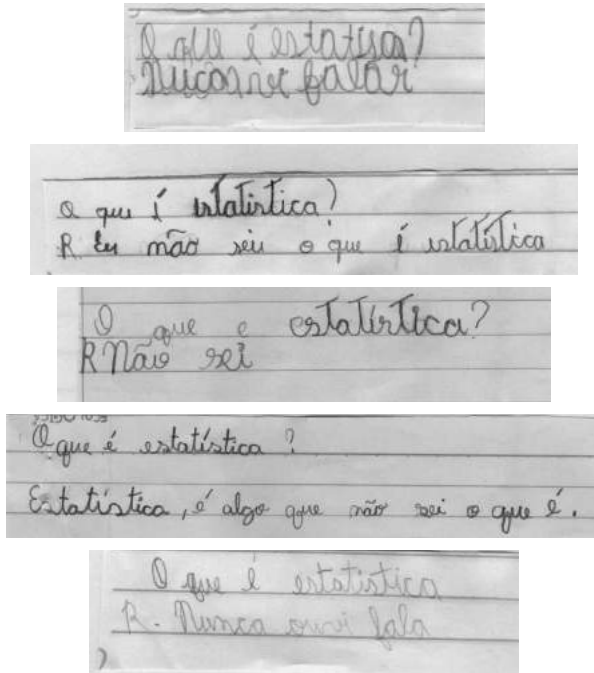 O que é estatisca?
Nuca ouvi falar
O que é estatistica?
R Eu não sei o que é estatística
O que e estatística?
R Não sei
O que é estatística?
Estatística, é algo que não sei o que é.
O que é estatistica
R. Nunca ouvi fala